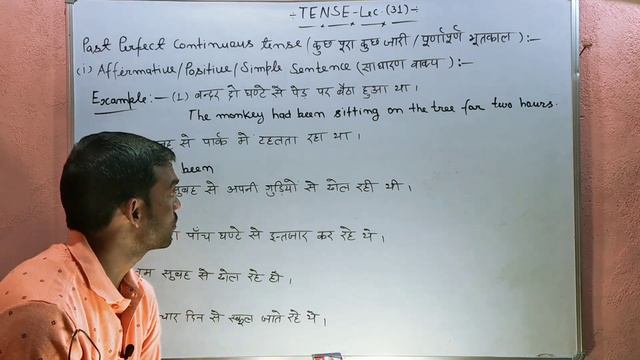 ÷ TENSE - Lec. (31) ÷
Past Perfect Continuous tense (कुछ पूरा कुछ जारी / पूर्णापूर्ण भूतकाल) :-
(i) Affirmative / Positive / Simple Sentence (साधारण वाक्य) :-
Example:- (1) बन्दर दो घण्टे से पेड़ पर बैठा हुआ था।
The monkey had been sitting on the tree for two hours.
से पार्क में टहलता रहा था।
been
सुबह से अपनी गुड़ियों से खेल रही थी।
पाँच घण्टे से इन्तजार कर रहे थे।
सुबह से खेल रहे हो।
चार दिन से स्कूल जाते रहे थे।